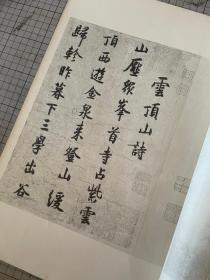 雲頂山詩
山壓衆峯首寺占紫雲
頂西遊金泉来登山緩
歸軫昨暮下三學出谷